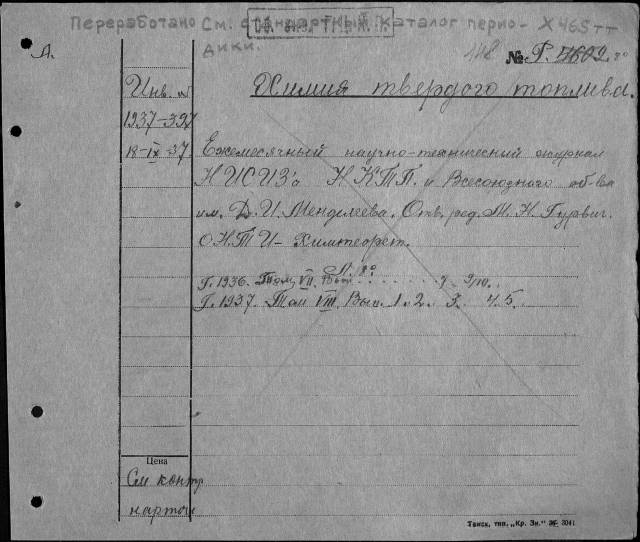 Переработано См. стандартный каталог перио- Х465тт
дики.
А.
148 № Р.
Инв. №
1937-397
18-IX-37.
Химия твердого топлива.
Ежемесячный научно-технический журнал
НИСИЗ'а НКТП. и Всесоюзного об-ва
им. Д. И. Менделеева. Отв. ред. М. Н. Гурвич.
ОНТИ-Химтеорет.
Л. 8°
Г. 1936. Том VII. Вып. 9/10.
Г. 1937. Том VIII. Вып. 1. 2. 3. 4. 5.
Цена
См конт
карточ
Томск, тип. „Кр. Зн." 3041